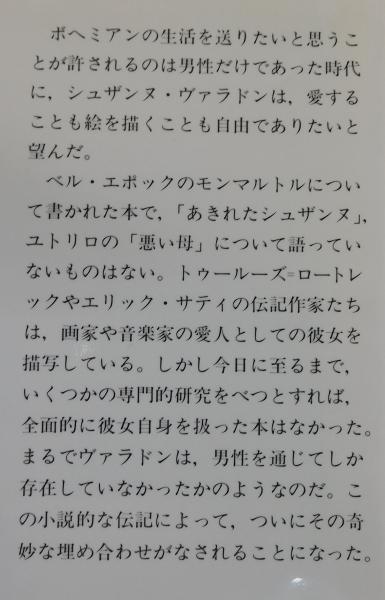 ボヘミアンの生活を送りたいと思うこ
とが許されるのは男性だけであった時代
に，シュザンヌ・ヴァラドンは，愛する
ことも絵を描くことも自由でありたいと
望んだ。
ベル・エポックのモンマルトルについ
て書かれた本で，「あきれたシュザンヌ」，
ユトリロの「悪い母」について語ってい
ないものはない。トゥールーズ=ロートレ
ックやエリック・サティの伝記作家たち
は，画家や音楽家の愛人としての彼女を
描写している。しかし今日に至るまで，
いくつかの専門的研究をべつとすれば，
全面的に彼女自身を扱った本はなかった。
まるでヴァラドンは，男性を通じてしか
存在していなかったかのようなのだ。こ
の小説的な伝記によって，ついにその奇
妙な埋め合わせがなされることになった。